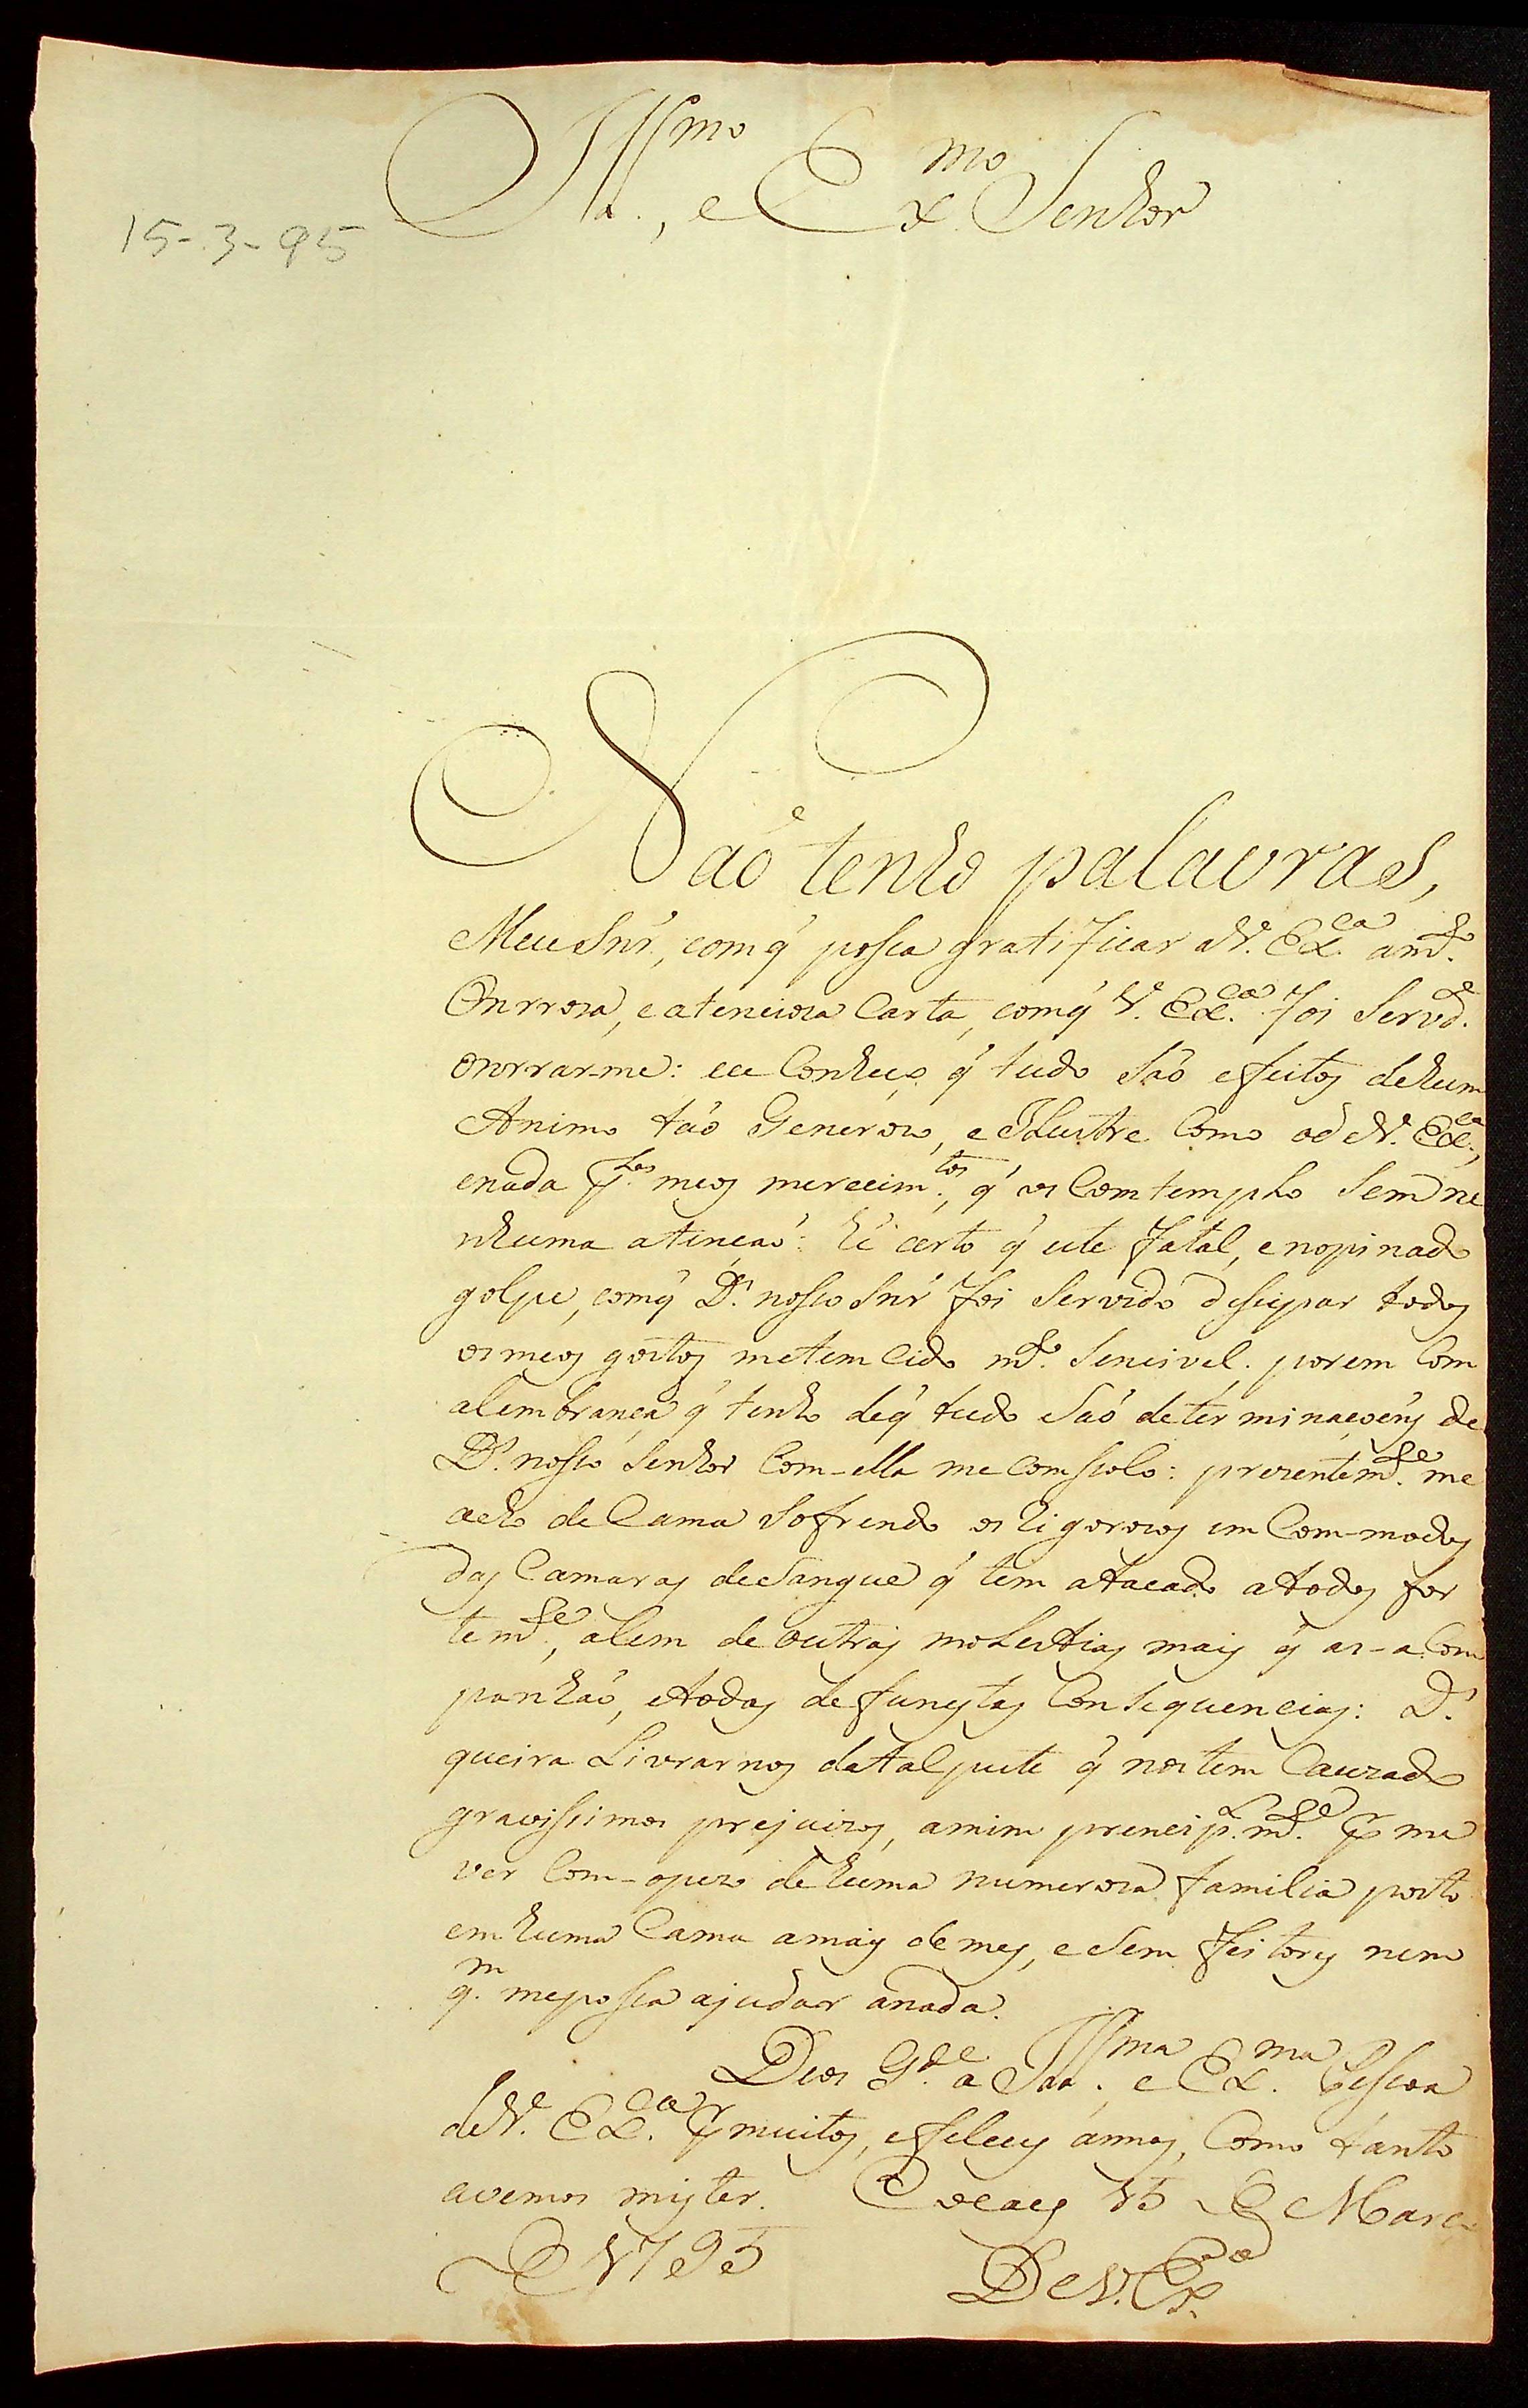 Illmo., e Exmo. Senhor
15-3-95
Naó tenho palavras,
Meu Snr', com q' posca gratificar a V. Exca. a mto.
Onrroza, e atencioza Carta, com q' V. Exca. foi Servdo.
onrrar-me: eu Conheço q' tudo Saó efeitos de hum
Animo taó Generozo, e Ilustre Como o de V. Exca.,
e nada plos. meos merecimtos., q' os Comtemplo Sem ne
nhuma atençaó: hé certo q' este fatal, e nopinado
golpe, com q' Ds. nosco Snr' foi Servido discipar todos
os meos gostos me tem Cido mto. Sencivel. porem Com
a lembrança q' tenho de q' tudo Saó determinaçoens de
Ds. nosco Senhor Com-ella me Comscolo: prezentemte. me
acho de Cama Sofrendo os Rigorozos im Com-modos
das Camaras de Sangue q' tem atacado a todos for
temte., alem de outras molestias mais q' as-a Com
panhaó, e todas de funestas Consequencias: Ds.
queira Livrarnos da tal peste q' nos tem Cauzado
gravissimos prejuizos, a mim prencipalmte. p me
ver Com-o pezo de huma numeroza familia posto
em huma Cama a mais de mes, e Sem Feitores nem
qm. me posca ajudar a nada.
Deos Gde. a Illma., e Exma. Pescoa
de V. Exca. p muitos, e felices annos, Como tanto
avemos mister. Ocacs 15 de Março
de 1795
De V. Exa.